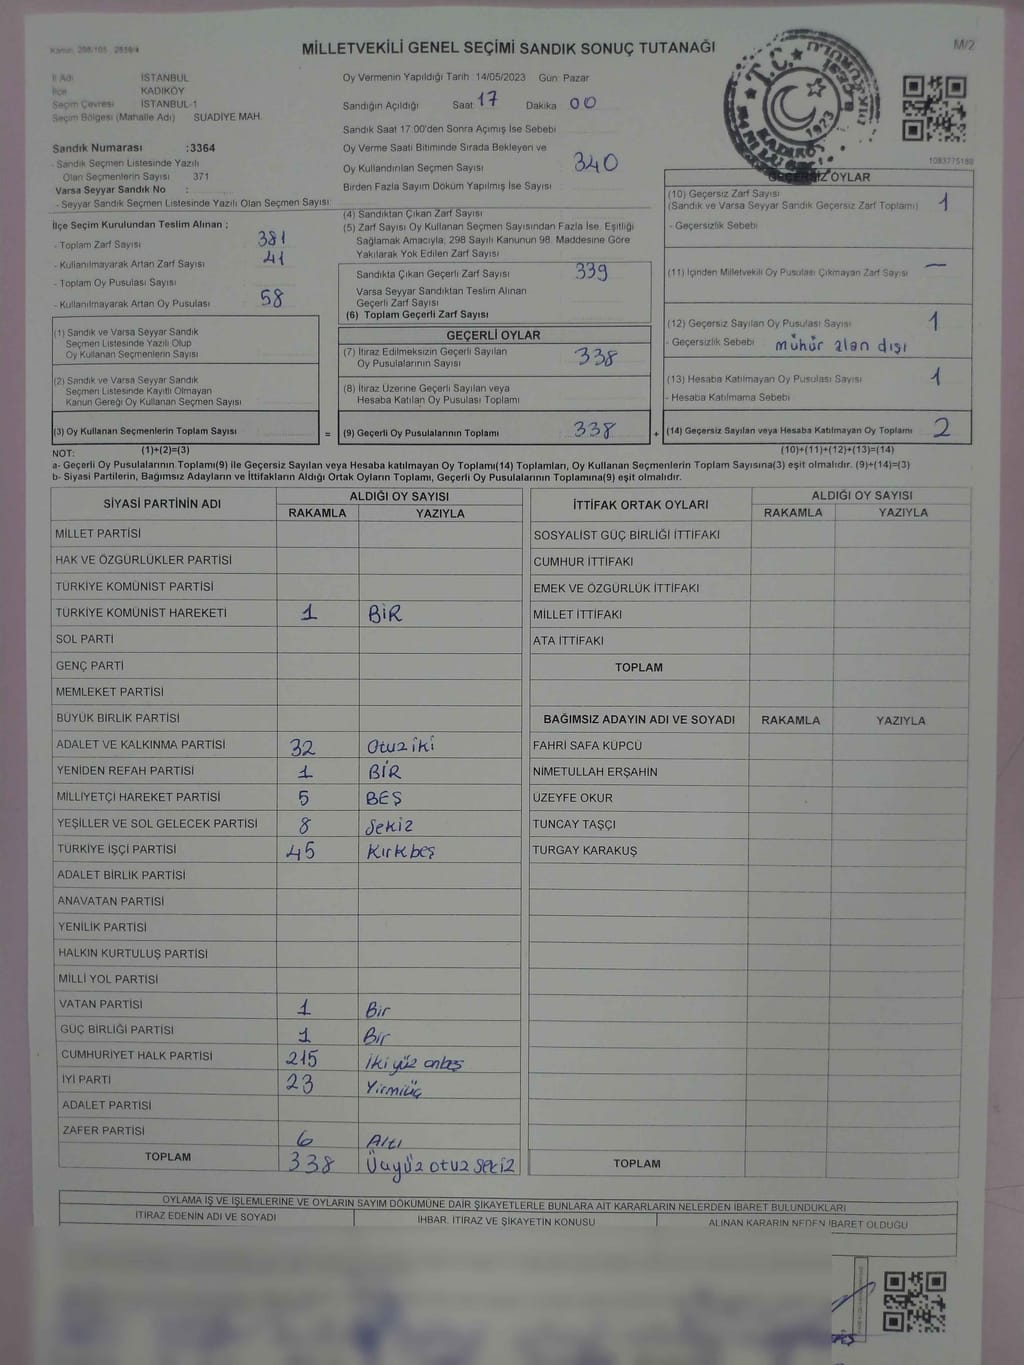 Kanun: 298/105, 2839/4
MİLLETVEKİLİ GENEL SEÇİMİ SANDIK SONUÇ TUTANAĞI
M/2
İl Adı İSTANBUL
İlçe KADIKÖY
Seçim Çevresi İSTANBUL-1
Seçim Bölgesi (Mahalle Adı) SUADİYE MAH.
Oy Vermenin Yapıldığı Tarih 14/05/2023 Gün: Pazar
Sandığın Açıldığı Saat 17 Dakika 00
Sandık Saat 17:00'den Sonra Açımış İse Sebebi
T.C.
KADIKÖY
1923
1083775188
Sandık Numarası :3364
- Sandık Seçmen Listesinde Yazılı
Olan Seçmenlerin Sayısı 371
Varsa Seyyar Sandık No :
- Seyyar Sandık Seçmen Listesinde Yazılı Olan Seçmen Sayısı:
Oy Verme Saati Bitiminde Sırada Bekleyen ve
Oy Kullandırılan Seçmen Sayısı 340
Birden Fazla Sayım Döküm Yapılmış İse Sayısı
İlçe Seçim Kurulundan Teslim Alınan ;
- Toplam Zarf Sayısı 381
- Kullanılmayarak Artan Zarf Sayısı 41
- Toplam Oy Pusulası Sayısı
- Kullanılmayarak Artan Oy Pusulası 58
(1) Sandık ve Varsa Seyyar Sandık
Seçmen Listesinde Yazılı Olup
Oy Kullanan Seçmenlerin Sayısı
(2) Sandık ve Varsa Seyyar Sandık
Seçmen Listesinde Kayıtlı Olmayan
Kanun Gereği Oy Kullanan Seçmen Sayısı
(3) Oy Kullanan Seçmenlerin Toplam Sayısı =
(1)+(2)=(3)
(4) Sandıktan Çıkan Zarf Sayısı
(5) Zarf Sayısı Oy Kullanan Seçmen Sayısından Fazla İse, Eşitliği
Sağlamak Amacıyla; 298 Sayılı Kanunun 98. Maddesine Göre
Yakılarak Yok Edilen Zarf Sayısı
Sandıkta Çıkan Geçerli Zarf Sayısı 339
Varsa Seyyar Sandıktan Teslim Alınan
Geçerli Zarf Sayısı
(6) Toplam Geçerli Zarf Sayısı
GEÇERLİ OYLAR
(7) İtiraz Edilmeksizin Geçerli Sayılan
Oy Pusulalarının Sayısı 338
(8) İtiraz Üzerine Geçerli Sayılan veya
Hesaba Katılan Oy Pusulası Toplamı
(9) Geçerli Oy Pusulalarının Toplamı 338 +
GEÇERSİZ OYLAR
(10) Geçersiz Zarf Sayısı
(Sandık ve Varsa Seyyar Sandık Geçersiz Zarf Toplamı) 1
- Geçersizlik Sebebi
(11) İçinden Milletvekili Oy Pusulası Çıkmayan Zarf Sayısı —
(12) Geçersiz Sayılan Oy Pusulası Sayısı 1
- Geçersizlik Sebebi mühür alan dışı
(13) Hesaba Katılmayan Oy Pusulası Sayısı 1
- Hesaba Katılmama Sebebi
(14) Geçersiz Sayılan veya Hesaba Katılmayan Oy Toplamı 2
(10)+(11)+(12)+(13)=(14)
NOT:
a- Geçerli Oy Pusulalarının Toplamı(9) ile Geçersiz Sayılan veya Hesaba katılmayan Oy Toplamı(14) Toplamları, Oy Kullanan Seçmenlerin Toplam Sayısına(3) eşit olmalıdır. (9)+(14)=(3)
b- Siyasi Partilerin, Bağımsız Adayların ve İttifakların Aldığı Ortak Oyların Toplamı, Geçerli Oy Pusulalarının Toplamına(9) eşit olmalıdır.
SİYASİ PARTİNİN ADI ALDIĞI OY SAYISI
RAKAMLA YAZIYLA
MİLLET PARTİSİ
HAK VE ÖZGÜRLÜKLER PARTİSİ
TÜRKİYE KOMÜNİST PARTİSİ
TÜRKİYE KOMÜNİST HAREKETİ 1 BİR
SOL PARTİ
GENÇ PARTİ
MEMLEKET PARTİSİ
BÜYÜK BİRLİK PARTİSİ
ADALET VE KALKINMA PARTİSİ 32 Otuz iki
YENİDEN REFAH PARTİSİ 1 BİR
MİLLİYETÇİ HAREKET PARTİSİ 5 BEŞ
YEŞİLLER VE SOL GELECEK PARTİSİ 8 Sekiz
TÜRKİYE İŞÇİ PARTİSİ 45 Kırkbeş
ADALET BİRLİK PARTİSİ
ANAVATAN PARTİSİ
YENİLİK PARTİSİ
HALKIN KURTULUŞ PARTİSİ
MİLLİ YOL PARTİSİ
VATAN PARTİSİ 1 Bir
GÜÇ BİRLİĞİ PARTİSİ 1 Bir
CUMHURİYET HALK PARTİSİ 215 İki yüz onbeş
İYİ PARTİ 23 Yirmiüç
ADALET PARTİSİ
ZAFER PARTİSİ 6 Altı
TOPLAM 338 Üçyüz otuz sekiz
İTTİFAK ORTAK OYLARI ALDIĞI OY SAYISI
RAKAMLA YAZIYLA
SOSYALİST GÜÇ BİRLİĞİ İTTİFAKI
CUMHUR İTTİFAKI
EMEK VE ÖZGÜRLÜK İTTİFAKI
MİLLET İTTİFAKI
ATA İTTİFAKI
TOPLAM
BAĞIMSIZ ADAYIN ADI VE SOYADI RAKAMLA YAZIYLA
FAHRİ SAFA KÜPCÜ
NİMETULLAH ERŞAHİN
ÜZEYFE OKUR
TUNCAY TAŞÇI
TURGAY KARAKUŞ
TOPLAM
OYLAMA İŞ VE İŞLEMLERİNE VE OYLARIN SAYIM DÖKÜMÜNE DAİR ŞİKAYETLERLE BUNLARA AİT KARARLARIN NELERDEN İBARET BULUNDUKLARI
İTİRAZ EDENİN ADI VE SOYADI İHBAR, İTİRAZ VE ŞİKAYETİN KONUSU ALINAN KARARIN NEDEN İBARET OLDUĞU